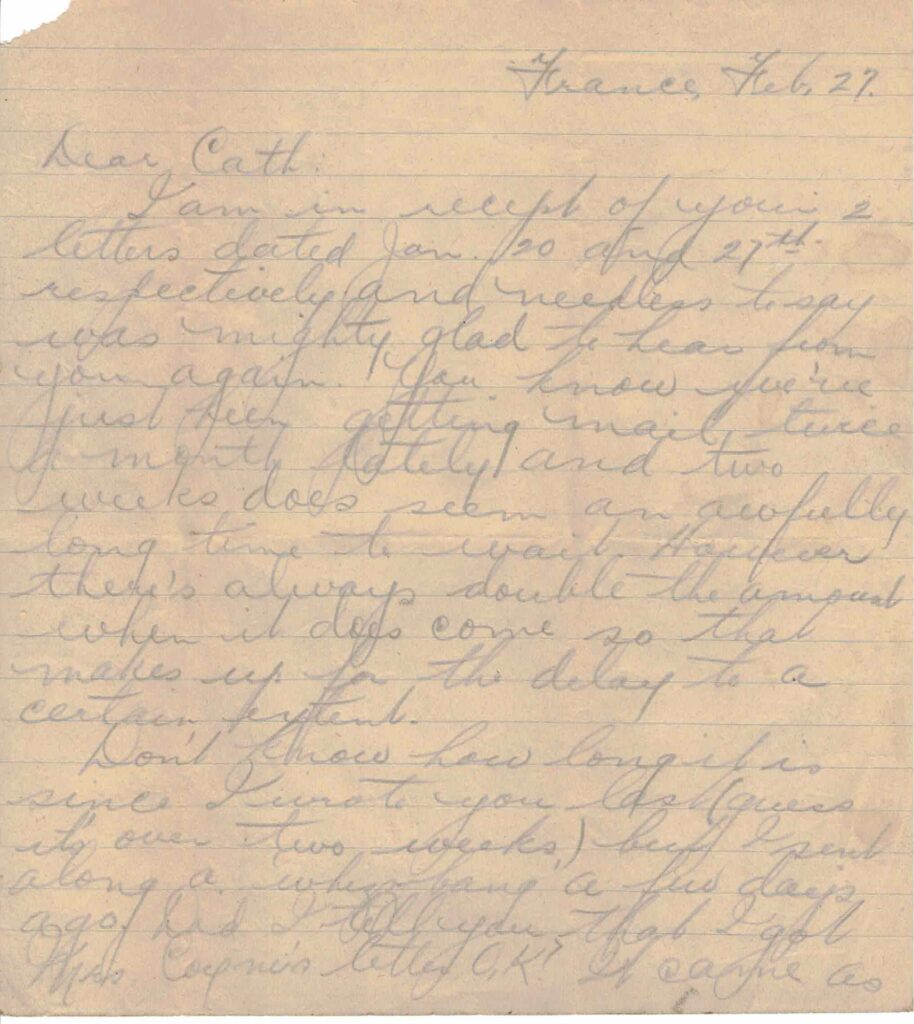 France, Feb. 27.
Dear Cath:
I am in recipt of your 2
letters dated Jan. 20 and 27th
respectively and needless to say
was mighty glad to hear from
you again. You know we've
just been getting mail twice
a month lately and two
weeks does seem an awfully
long time to wait. However
there's always double the amount
when it does come so that
makes up for the delay to a
certain extent.
Don't know how long it is
since I wrote you last (guess
it's over two weeks) but I sent
along a whizz bang a few days
ago. Did I tell you that I got
Mrs Coyne's letter O.K? It came as